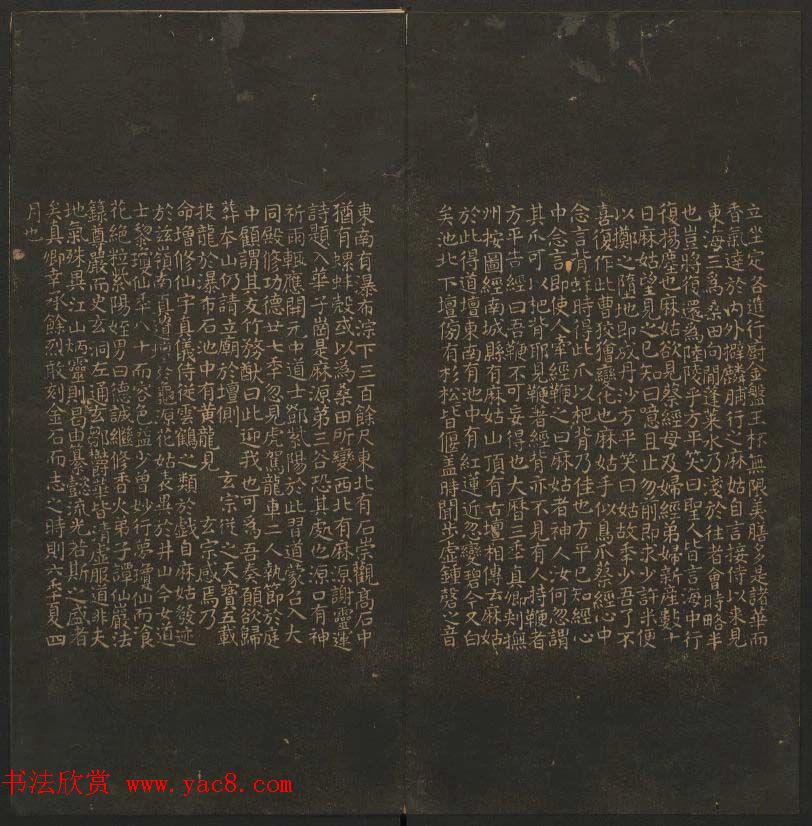 立坐定各進行廚金盤玉杯無限美膳多是諸華而
香氣達於內外擗麟脯行之麻姑自言接待以來見
東海三為桑田向間蓬萊水乃淺於往者會時略半
也豈將復還為陸陵乎方平笑曰聖人皆言海中行
復揚塵也麻姑欲見蔡經母及婦經弟婦新產數十
日麻姑望見之已知曰噫且止勿前即求少許米便
以擲之墮地即成丹沙方平笑曰姑故秊少吾了不
喜復作此曹狡獪變化也麻姑手似鳥爪蔡經心中
念言背蛘時得此爪以杷背乃佳也方平已知經心
中念言即使人牽經鞭之曰麻姑者神人汝何忽謂
其爪可以杷背耶見鞭著經背亦不見有人持鞭者
方平告經曰吾鞭不可妄得也大曆三秊真卿刺撫
州按圖經南城縣有麻姑山頂有古壇相傳云麻姑
於此得道壇東南有池中有紅蓮近忽變碧今又白
矣池北下壇傍有杉松皆偃蓋時聞步虛鍾磬之音
東南有瀑布淙下三百餘尺東北有石崇觀高石中
猶有螺蚌殼或以為桑田所變西北有麻源謝靈運
詩題入華子崗是麻源第三谷恐其處也源口有神
祈雨輒應開元中道士鄧紫陽於此習道蒙召入大
同殿修功德廿七秊忽見虎駕龍車二人執節於庭
中顧謂其友竹務猷曰此迎我也可為吾奏願欲歸
葬本山仍請立廟於壇側 玄宗從之天寶五載
投龍於瀑布石池中有黃龍見 玄宗感焉乃
命增修仙宇真儀侍從雲鶴之類於戲自麻姑發迹
於茲嶺南真遺壇於龜源花姑表異於井山今女道
士黎瓊仙秊八十而容色益少曾妙行夢瓊仙而飡
花絕粒紫陽姪男曰德誠繼修香火弟子譚仙巖法
籙尊嚴而史玄洞左通玄鄒鬱華皆清虛服道非夫
地氣殊異江山炳靈則曷由纂懿流光若斯之盛者
矣真卿幸承餘烈敢刻金石而志之時則六秊夏四
月也
书法欣赏 www.yac8.com